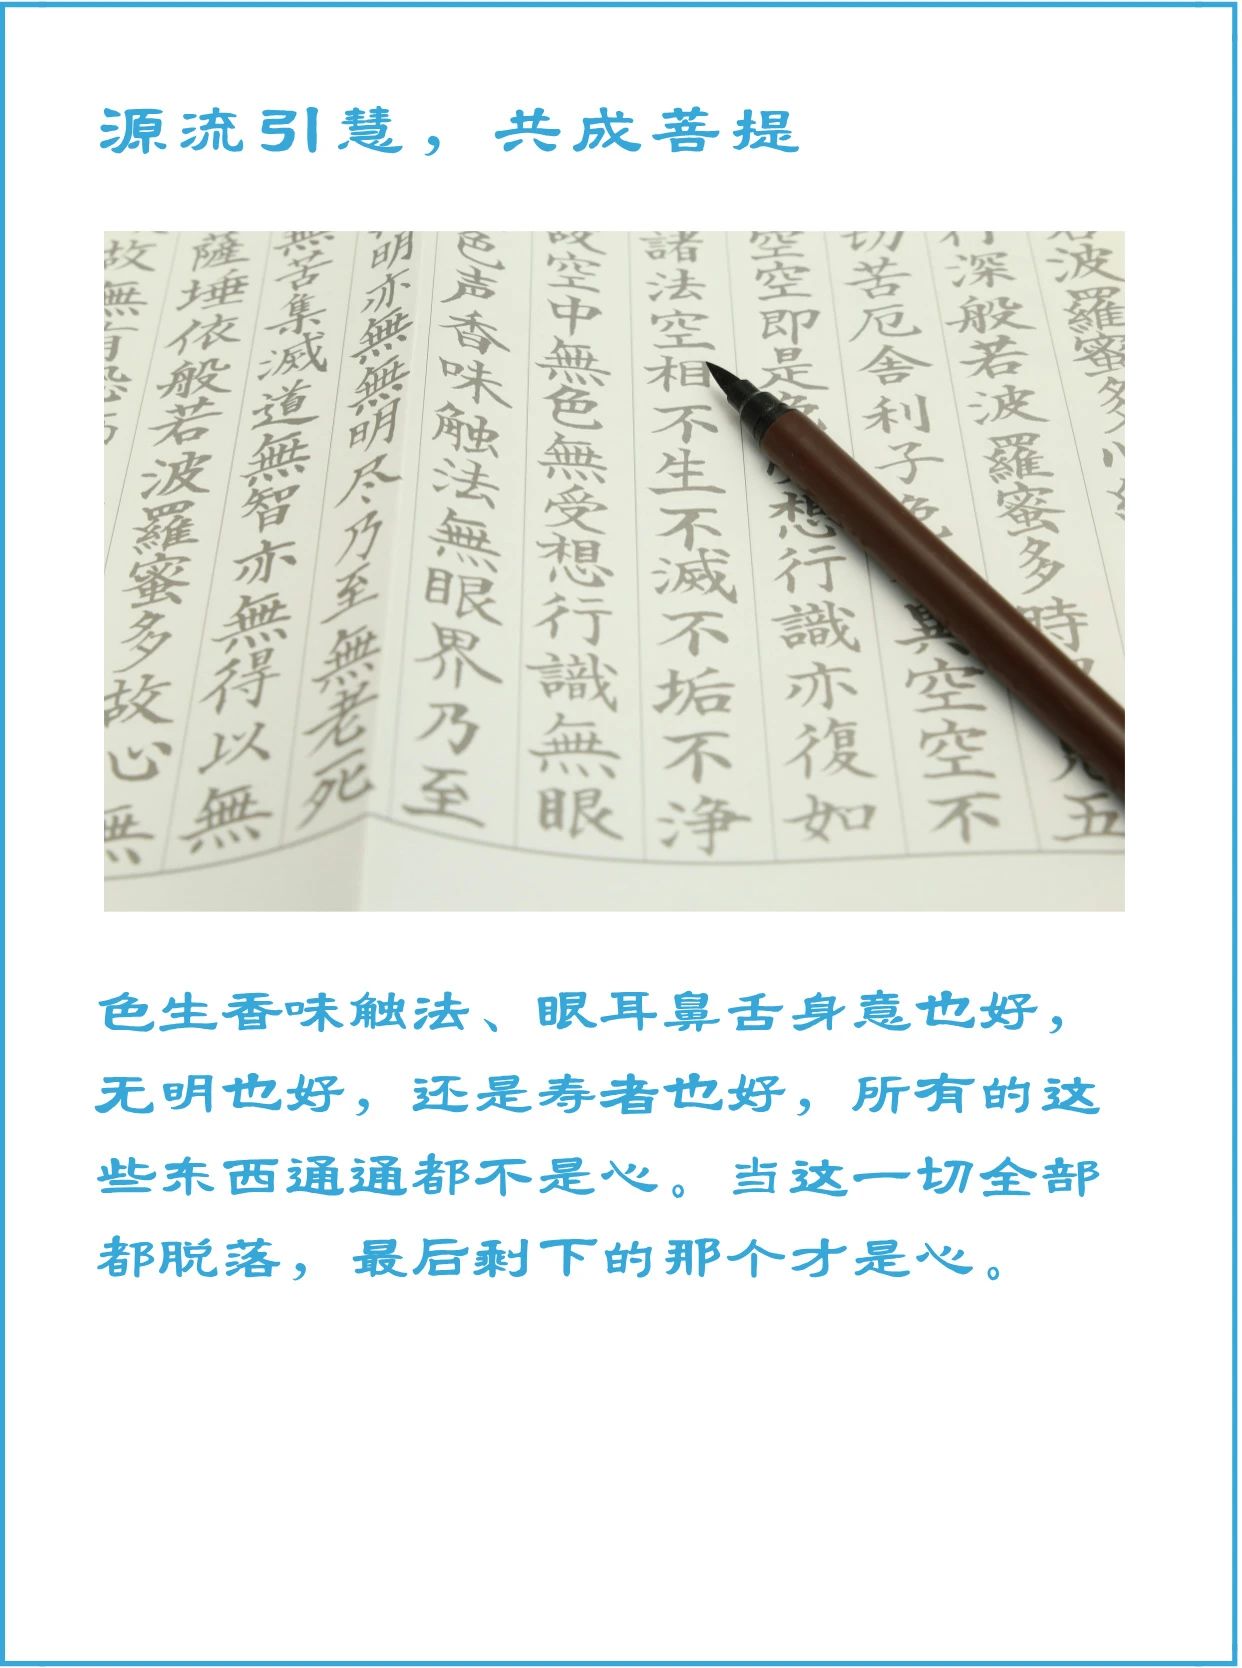 源流引慧，共成菩提
波羅蜜多
行深般若波羅蜜多時五
切苦厄舎利子色異空空不
空空即是色想行識亦復如
諸法空相不生不滅不垢不浄
故空中無色無受想行識無眼
色声香味触法無眼界乃至
明亦無無明尽乃至無老死
無苦集滅道無智亦無得以無
薩埵依般若波羅蜜多故心無
故無有恐
色生香味触法、眼耳鼻舌身意也好，
无明也好，还是寿者也好，所有的这
些东西通通都不是心。当这一切全部
都脱落，最后剩下的那个才是心。